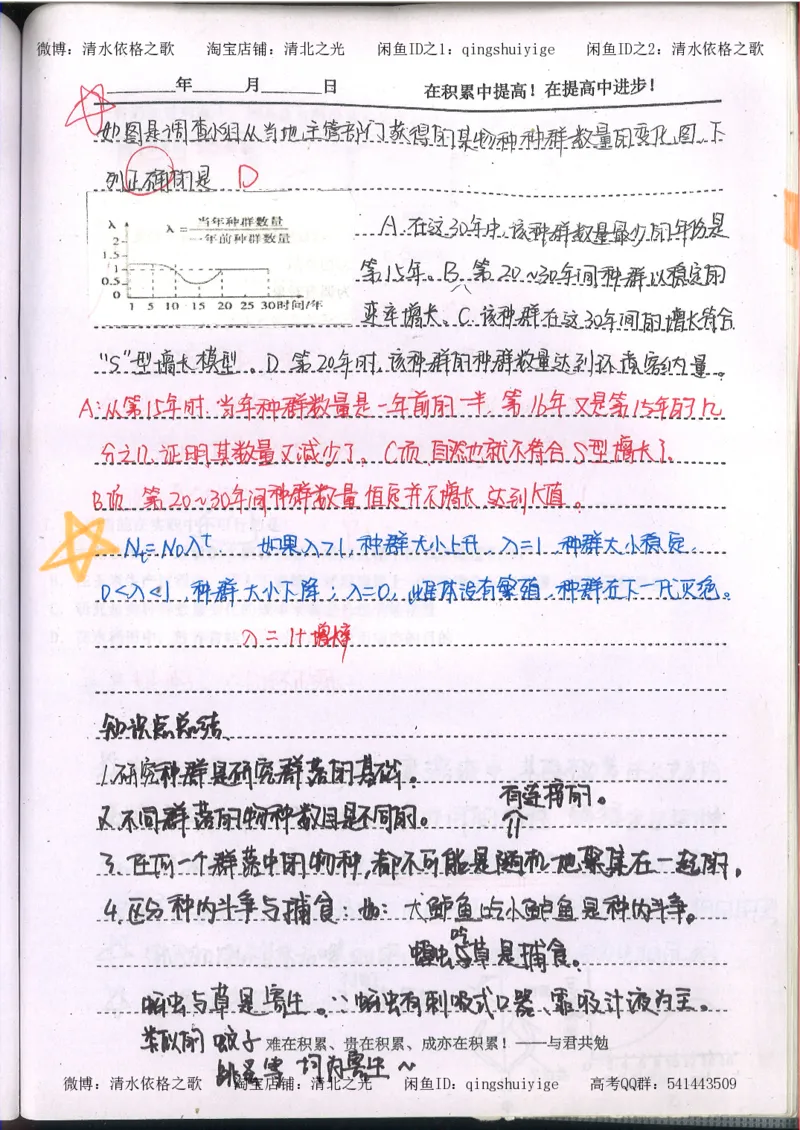 微博：清水依格之歌 淘宝店铺：清北之光 闲鱼ID之1：qingshuiyige 闲鱼ID之2：清水依格之歌
年 月 日 在积累中提高！在提高中进步！
如图是调查小组从当地主管部门获得的某物种种群数量的变化图，下
列正确的是 D
λ λ = 当年种群数量
一年前种群数量
2
1.5
1
0.5
0
1 5 10 15 20 25 30时间/年
A. 在这30年中，该种群数量最少的年份是
第15年。B. 第20~30年间种群以稳定的
速率增长。C. 该种群在这30年间的增长符合
“S”型增长模型。D. 第20年时，该种群的种群数量达到环境容纳量。
A: 从第15年时，当年种群数量是一年前的一半，第16年又是第15年的几
分之几，证明其数量又减少了。C项，自然也就不符合S型增长了。
B项，第20~30年间种群数量恒定并不增长，达到K值。
Nt=N0λt. 如果λ>1，种群大小上升，λ=1，种群大小稳定，
0<λ<1，种群大小下降；λ=0，雌体没有繁殖，种群在下一代灭绝。
λ = 1+增长率
知识点总结
1.研究种群是研究群落的基础。
2.不同群落的物种数目是不同的。
有选择的。
3.任何一个群落中的物种，都不可能是随机地聚集在一起的。
4.区分种内斗争与捕食：如：大鲈鱼吃小鲈鱼是种内斗争。
蝗虫吃草是捕食。
蚜虫与草是寄生。∵蚜虫有刺吸式口器、靠吸汁液为主。
类似的 蚊子 难在积累、贵在积累、成亦在积累！——与君共勉
跳蚤等 均为寄生~
微博：清水依格之歌 淘宝店铺：清北之光 闲鱼ID：qingshuiyige 高考QQ群：541443509